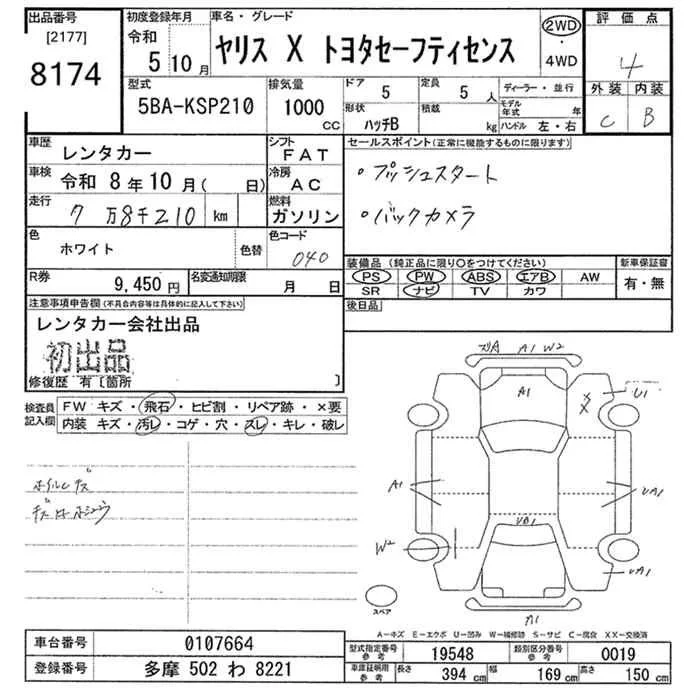 出品番号 初度登録年月 車名・グレード 評価点
[2177] 令和
8174 5 10月 ヤリス X トヨタセーフティセンス 2WD・4WD 4
型式 排気量 ドア 5 定員 5人 ディーラー・並行 外装 内装
5BA-KSP210 1000cc 形状 ハッチB 積載 kg モデル年式 年 ハンドル 左・右 C B
車歴 レンタカー シフト FAT セールスポイント(正常に機能するものに限ります)
車検 令和 8年10月( 日) 冷房 AC ・プッシュスタート
走行 7万8千210 km 燃料 ガソリン ・バックカメラ
色 ホワイト 色替 色コード 040
装備品(純正品に限り○をつけてください) 新車保証書
R券 9,450円 名変通知期限 月 日 PS PW ABS エアB AW 有・無
SR ナビ TV カワ
注意事項申告欄(不具合内容等は具体的に記入して下さい) 後日品
レンタカー会社出品
初出品
修復歴 有〔箇所 〕
検査員記入欄 FW キズ・飛石・ヒビ割・リペア跡・×要
内装 キズ・汚レ・コゲ・穴・スレ・キレ・破レ
ホイルキズ
A1 W2
A1 U1
X X
A1 UA1
UB1
W2 UA1
A1
スペア
A-キズ E-エクボ U-凹み W-補修跡 S-サビ C-腐食 XX-交換済
車台番号 0107664 型式指定番号 参考 19548 類別区分番号 参考 0019
登録番号 多摩 502 わ 8221 車庫証明用 参考 長さ 394cm 幅 169cm 高さ 150cm